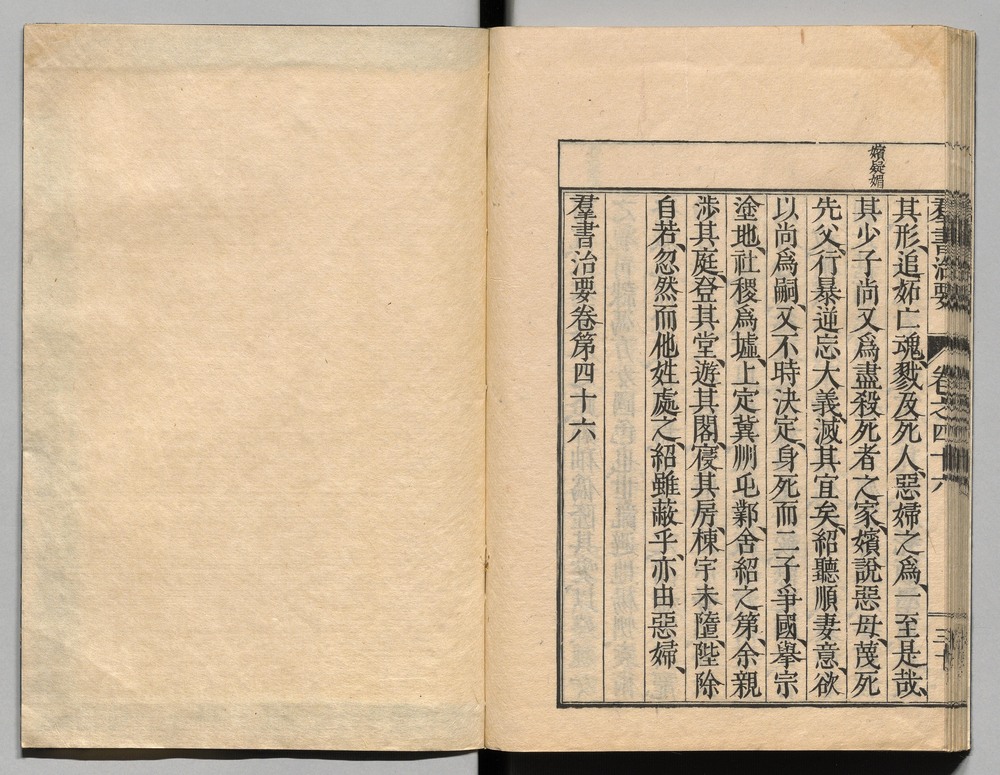 羣書治要 卷之四十六 三十
嬪疑媚
其形、追妬亡魂、戮及死人、惡婦之爲、一至是哉、
其少子尚又爲盡殺死者之家、嬪說惡母、蔑死
先父、行暴逆忘大義、滅其宜矣、紹聽順妻意、欲
以尚爲嗣、又不時決定、身死而二子爭國、擧宗
塗地、社稷爲墟、上定冀州屯鄴、舍紹之第、余親
涉其庭、登其堂、遊其閣、寢其房、棟宇未隳、陛除
自若、忽然而他姓處之、紹雖蔽乎、亦由惡婦、
羣書治要卷第四十六